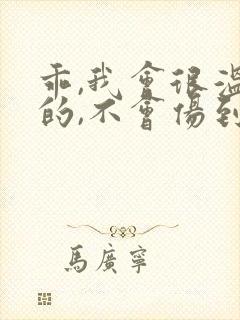 乖,我會很溫
的,不會傷到
馬廣寧